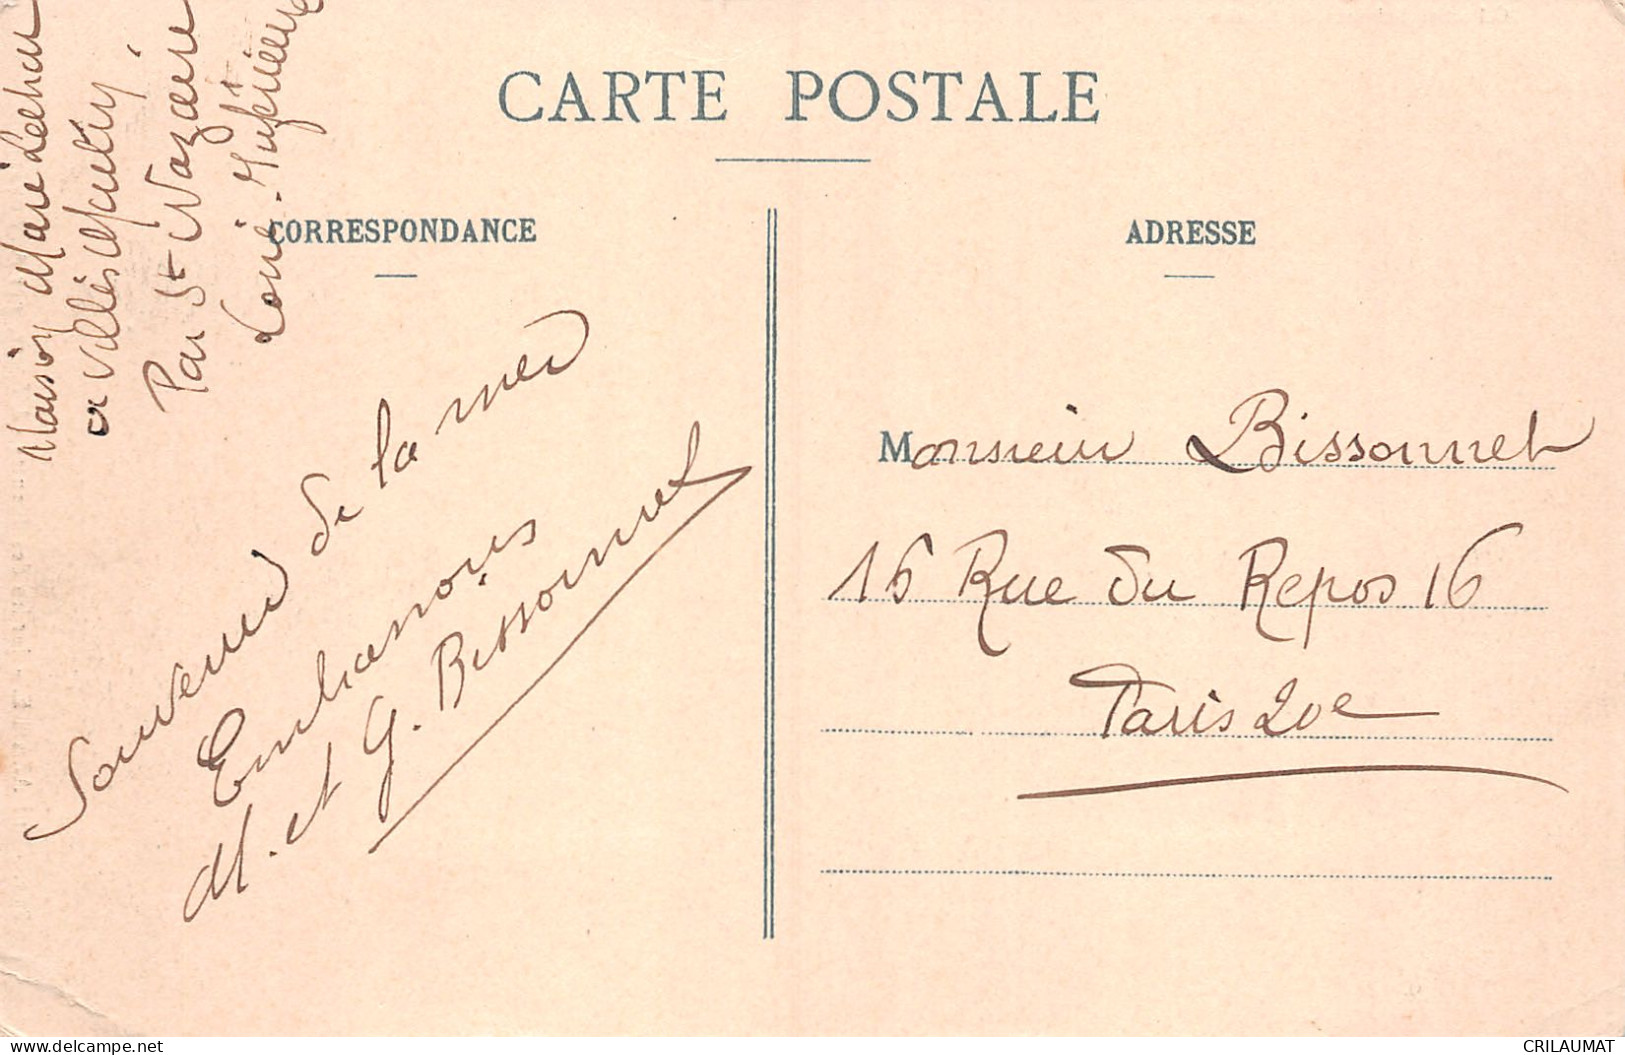 CARTE POSTALE
CORRESPONDANCE
Maison Marie
à Villès
Par St Nazaire
Loire-Inférieure
Souvenir de la mer
Embrassons
M. et G. Bissonnet
ADRESSE
Monsieur Bissonnet
16 Rue du Repos 16
Paris 20e
CRILAUMAT